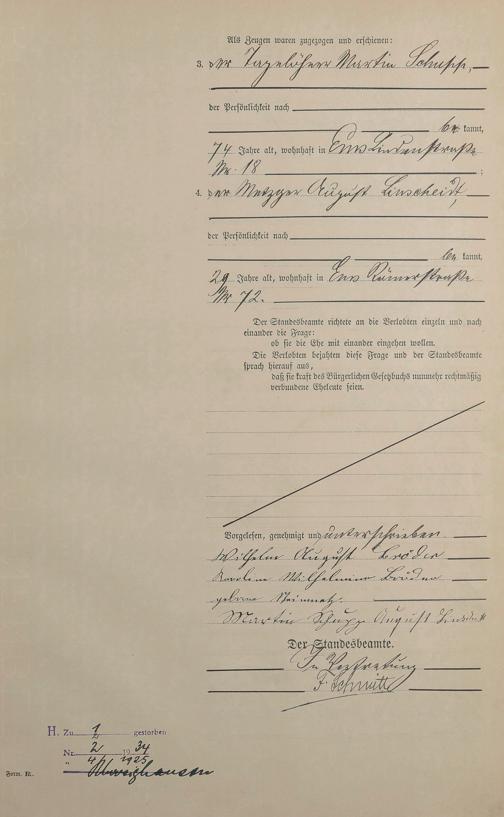 Als Zeugen waren zugezogen und erschienen:
3. der Tagelöhner Martin Schupp,
der Persönlichkeit nach
be kannt,
74 Jahre alt, wohnhaft in Ems Lindenstraße
Nr. 18 ;
4. der Metzger August Linscheidt,
der Persönlichkeit nach
be kannt,
29 Jahre alt, wohnhaft in Ems Römerstraße
Nr 72.
Der Standesbeamte richtete an die Verlobten einzeln und nach
einander die Frage:
ob sie die Ehe mit einander eingehen wollen.
Die Verlobten bejahten diese Frage und der Standesbeamte
sprach hierauf aus,
daß sie kraft des Bürgerlichen Gesetzbuchs nunmehr rechtmäßig
verbundene Eheleute seien.
Vorgelesen, genehmigt und unterschrieben
Wilhelm August Bröder
Karoline Wilhelmine Bröder
geborene Steinmetz.
Martin Schupp August Linscheidt
Der Standesbeamte.
In Vertretung
F. Schmitt
H. Zu 2 gestorben
Nr. 2 1934
" 4 1925
Form. II.